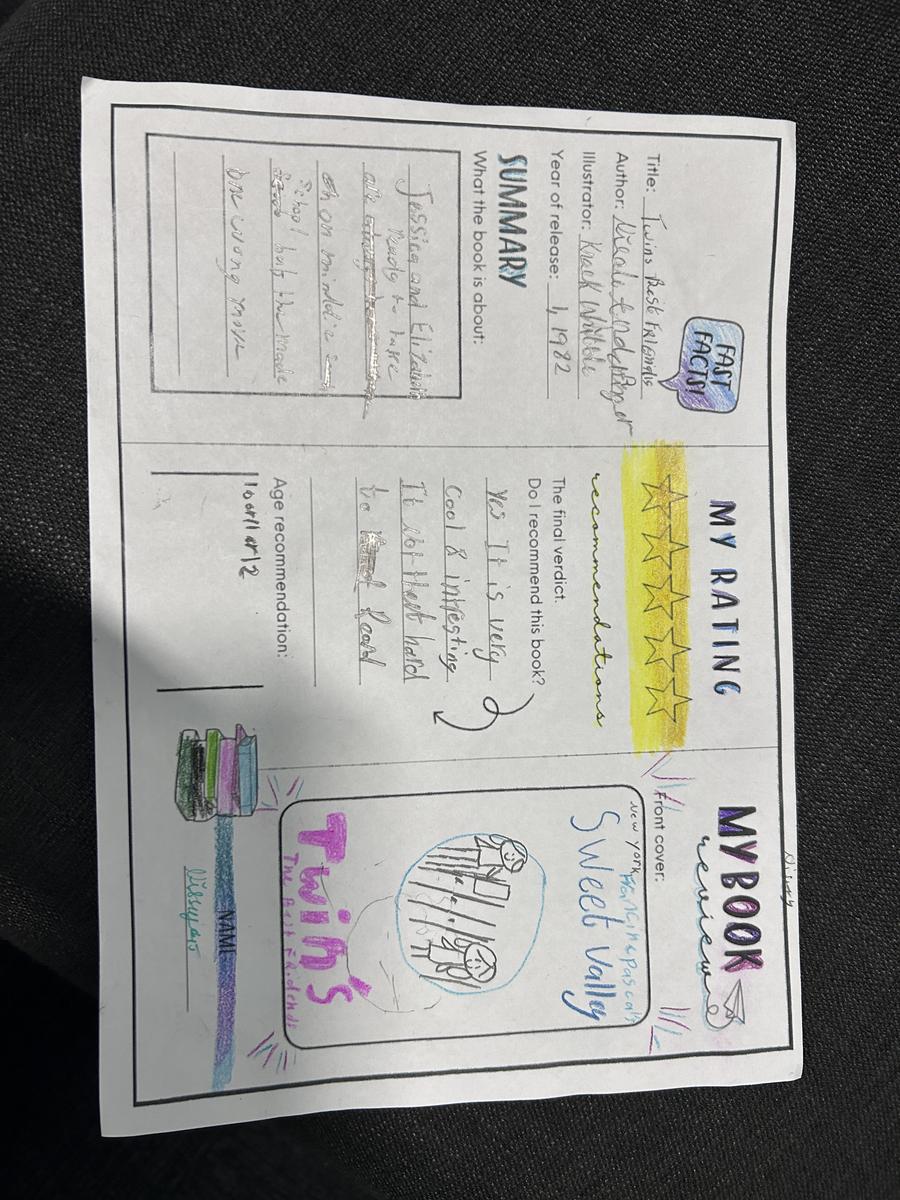 FAST
FACTS!
Title: Twins Best Friends
Author:
Illustrator:
Year of release: 1, 1982
SUMMARY
What the book is about:
Jessica and Elizabeth
Ready to take
are
on middle
School but the made
one wrong move
MY RATING
recommendations
The final verdict.
Do I recommend this book?
Yes It is very
cool & intresting
It is not that hard
to Read
Age recommendation:
11 or 12
MY BOOK
review
Front cover:
New York
Francine pascal's
Sweet Valley
Twin's
The Best Friends
NAME